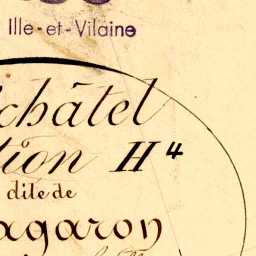 Ille-et-Vilaine
châtel
tion H⁴
dite de
agaron